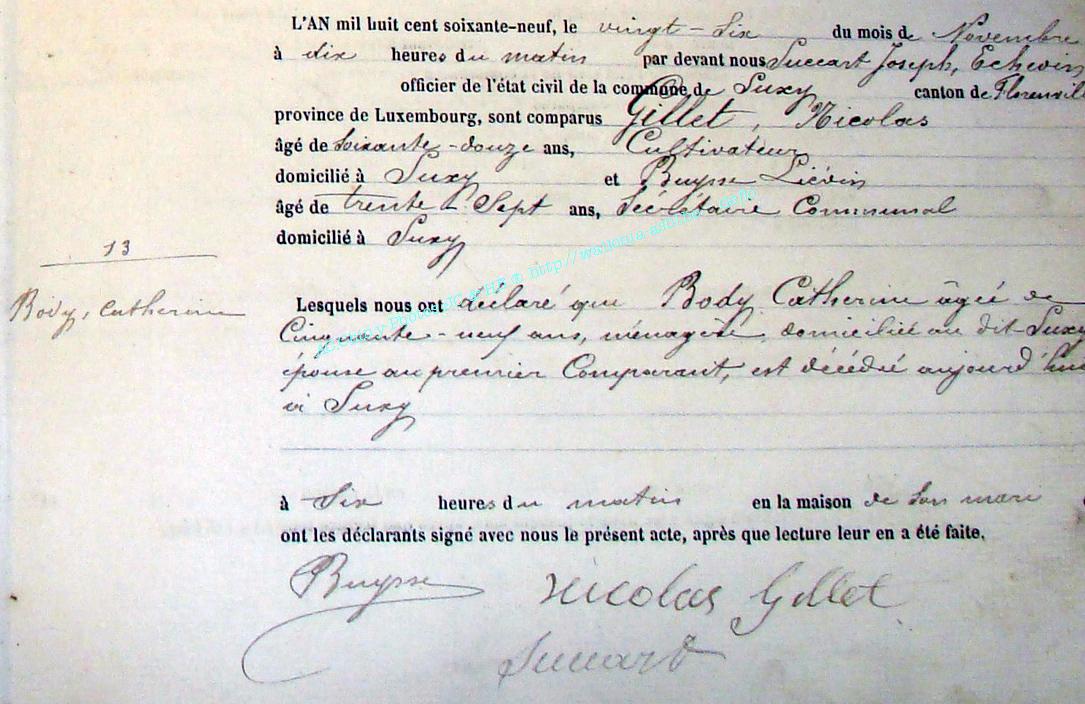 L'AN mil huit cent soixante-neuf, le vingt-six du mois de Novembre
à dix heures du matin par devant nous Succart Joseph, Echevin
officier de l'état civil de la commune de Suxy canton de Florenville
province de Luxembourg, sont comparus Gillet, Nicolas
âgé de soixante-douze ans, Cultivateur
domicilié à Suxy et Buysse Liévin
âgé de trente-sept ans, Sécrétaire Communal
domicilié à Suxy
13
Body, Catherine
Lesquels nous ont déclaré que Body Catherine âgée de
Cinquante-neuf ans, ménagère, domiciliée au dit Suxy
épouse au premier Comparant, est décédée aujourd'hui
à Suxy
à Six heures du matin en la maison de son mari
ont les déclarants signé avec nous le présent acte, après que lecture leur en a été faite.
Buysse Nicolas Gillet
http://wallonia-asbl